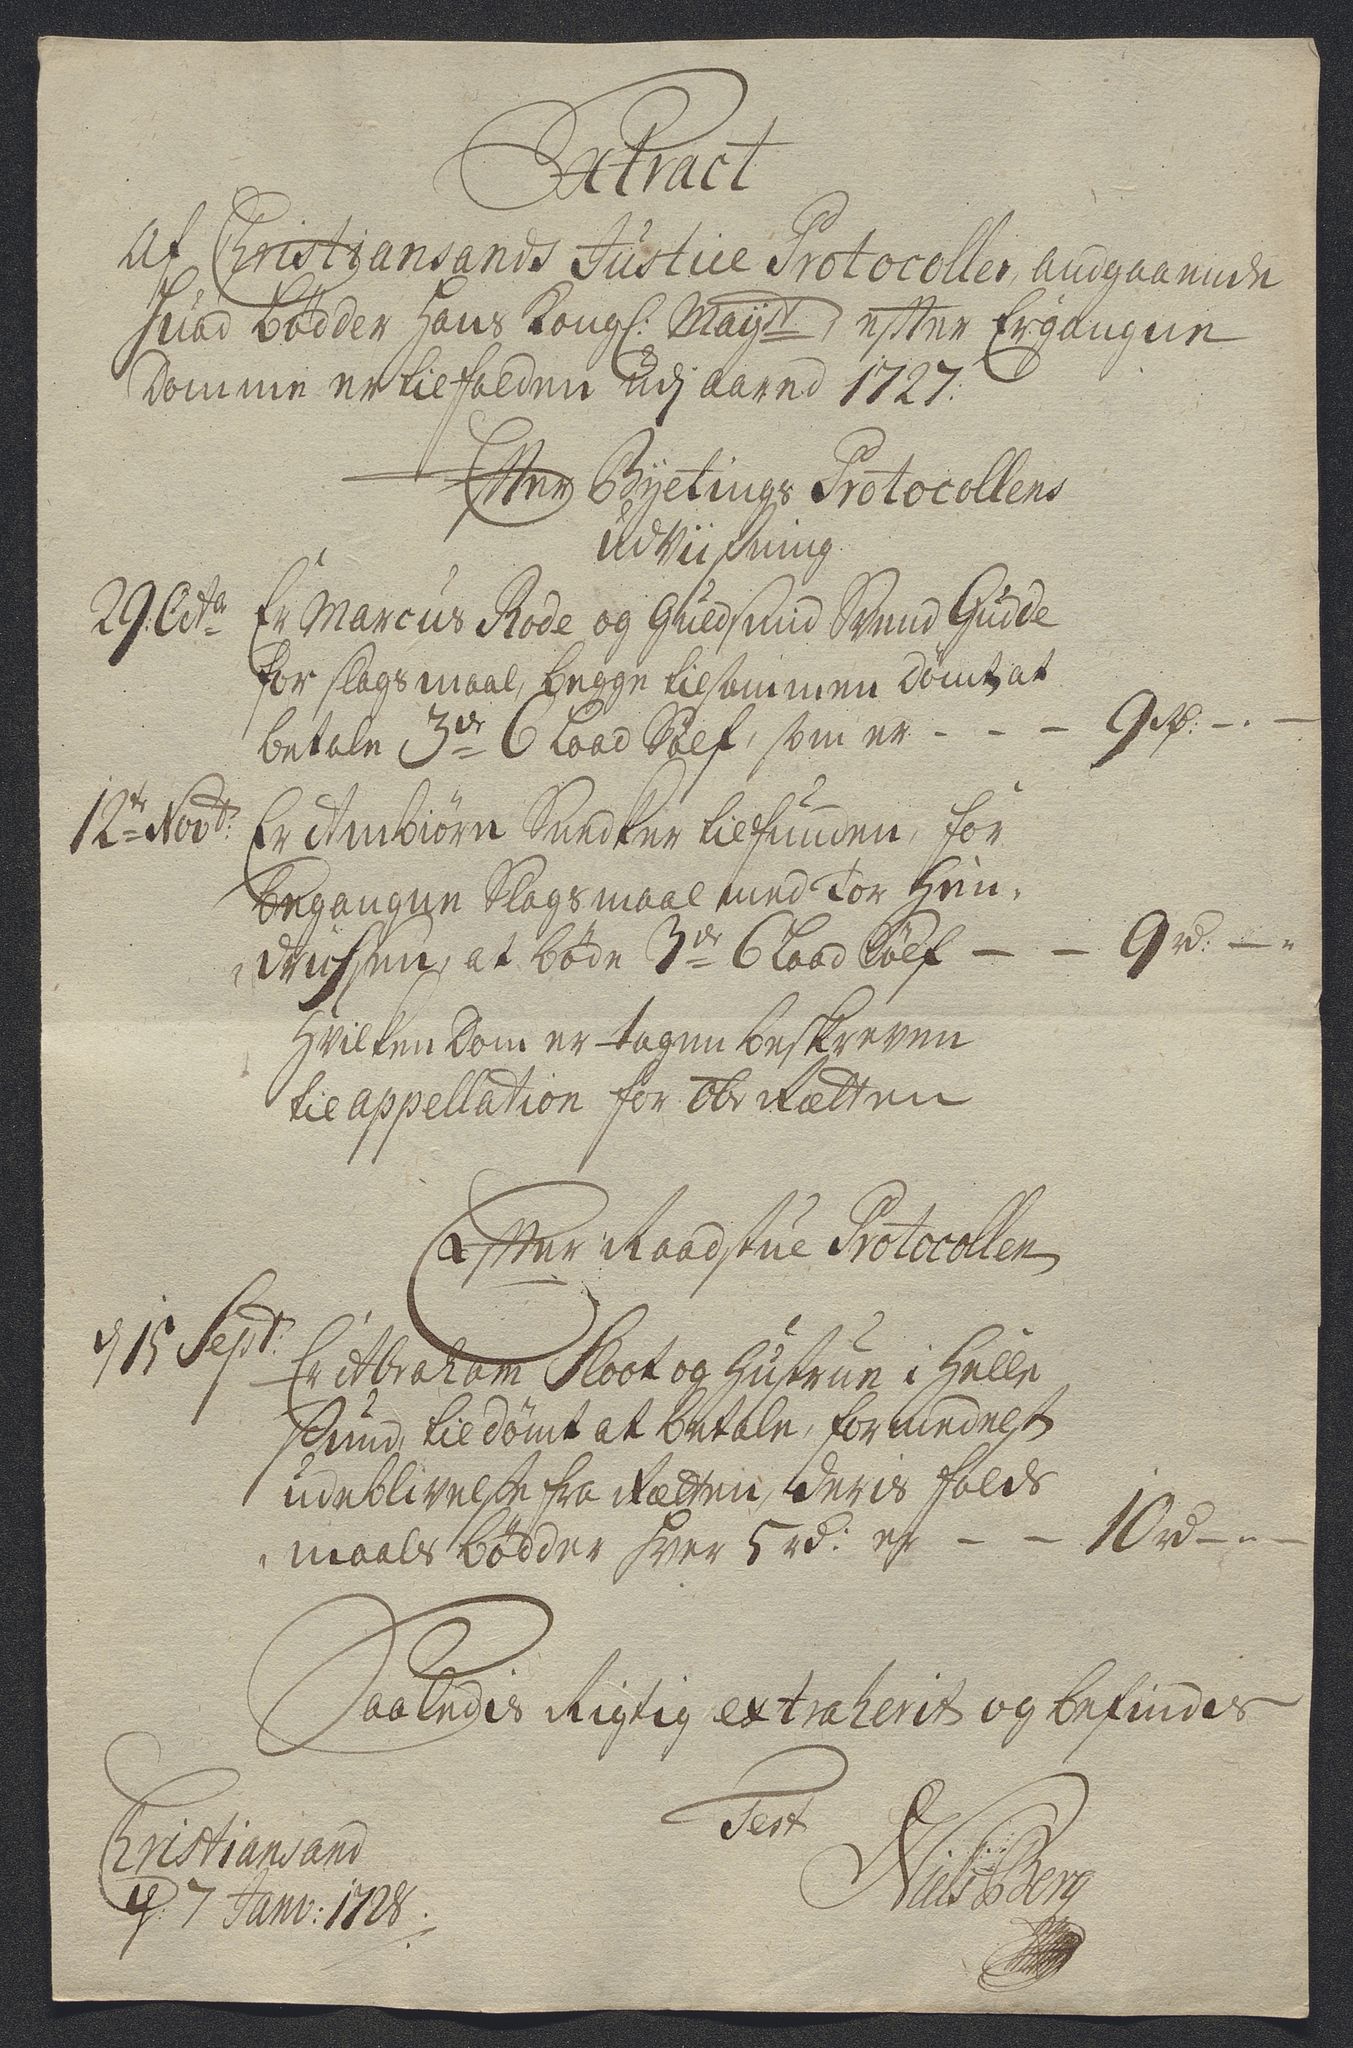 Extract
Af Christiansands Justice Protocoller, andgaaende
huad bødder Hans Kongl: Mayst efter Ergangne
Domme er tilfalden udj aared 1727:
Efter Byetings Protocollens
udviisning
29: Octa Er Marcus Rode og Guldsmid Svend Gudde
for slagsmaal, begge tilsammen dømt at
betale 3de 6 Lood Sølf, som er - - - 9 rd: - . -
12te Novb: Er Anbiørn Snedker tilfunden, for
begangne Slagsmaal med Tor Hen,
drichsen, at bøde 3de 6 Lood Sølf - - 9 rd: - -
Hvilken Dom er tagen beskreven
til appellation for Ob Rætten
Efter Raadstue Protocollen
d 15 Sept: Er Abraham Sloot og Hustrue i Helle
sund, tildømt at betale, formedelst
udeblivelse fra Rætten, deris falds
maals bødder hver 5 rd: er - - 10 rd - - -
Saaledis Rigtig extraherit og befindis
Test
Christiansand
d: 7 Janv: 1728.
Niels Berg